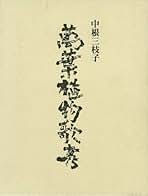 中根三枝子
萬葉植物歌考